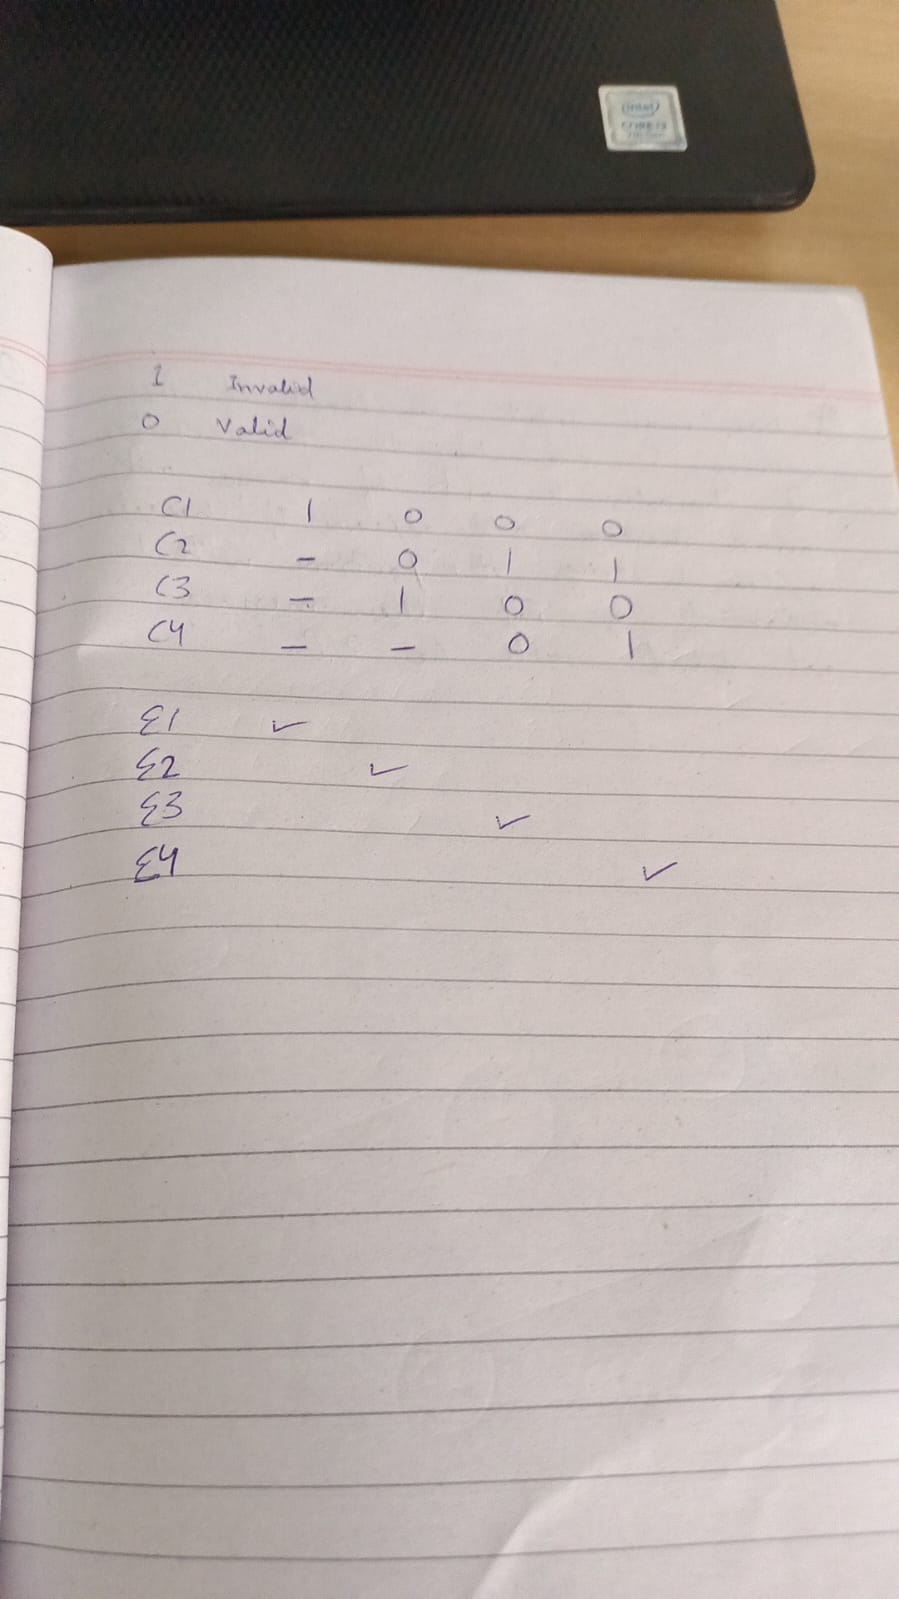 intel
CORE i3
1 Invalid
0 Valid
C1 1 0 0 0
C2 - 0 1 1
C3 - 1 0 0
C4 - - 0 1
E1 ✓
E2 ✓
E3 ✓
E4 ✓